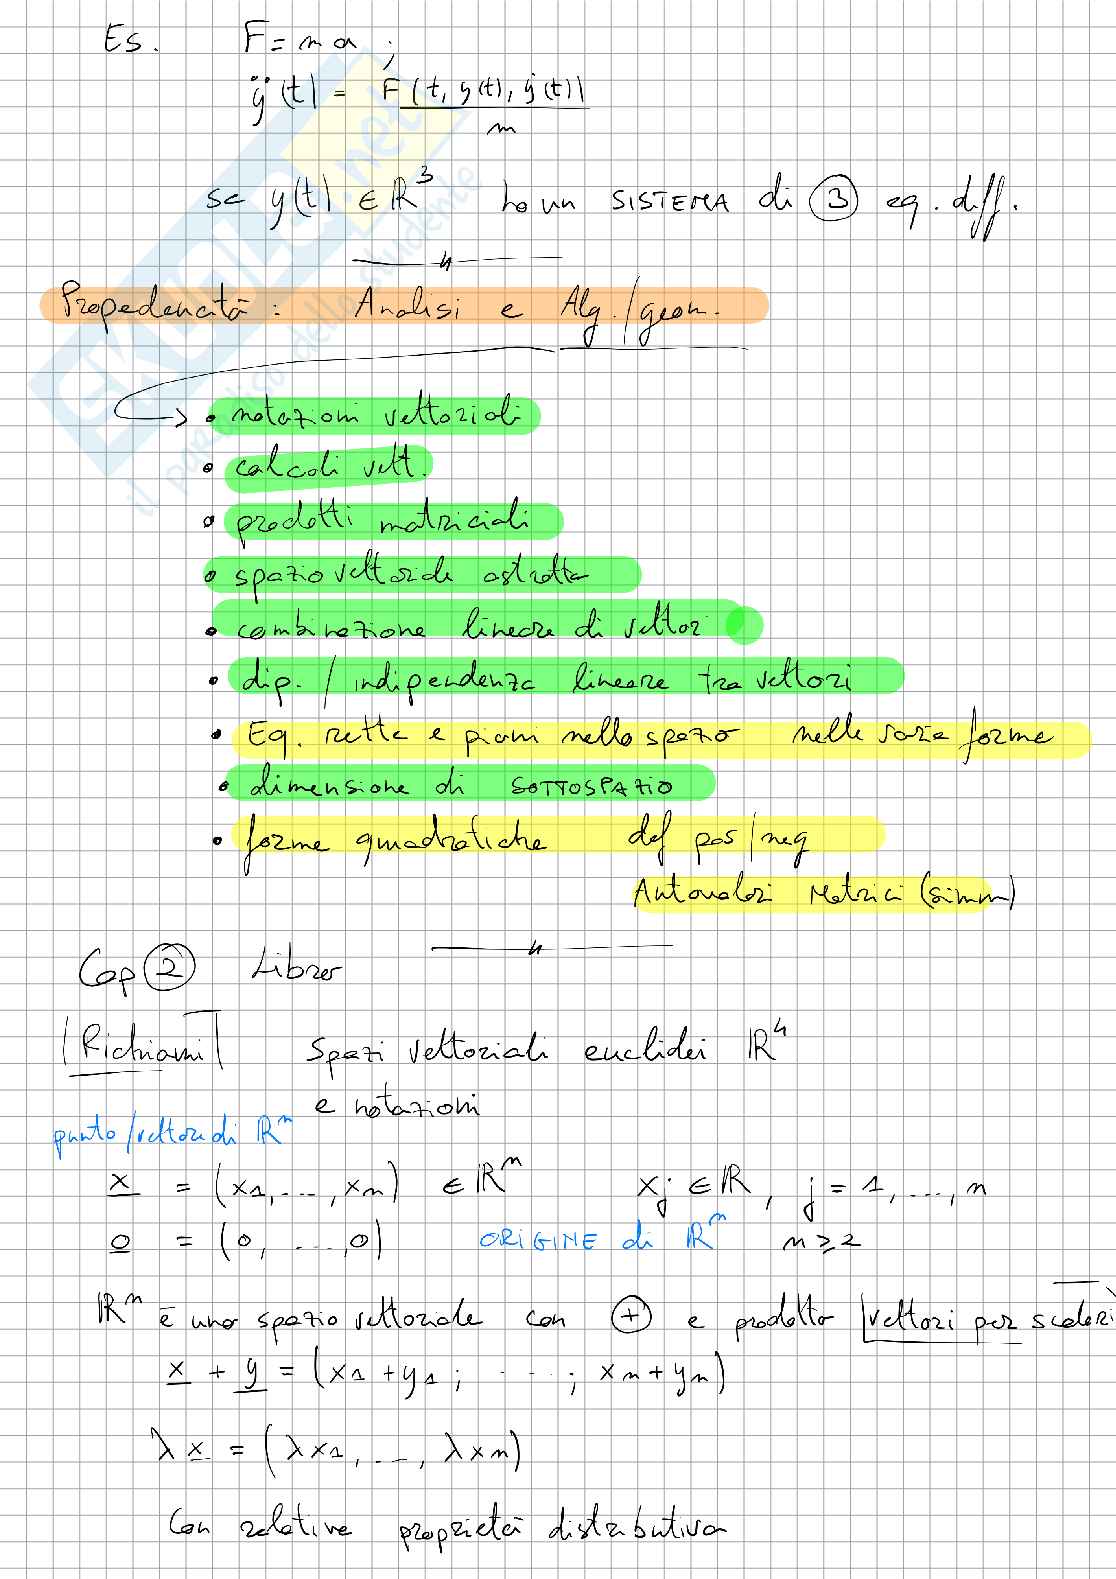 Es. F = m a ;
ÿ(t) = F(t, y(t), ẏ(t))
m
se y(t) ∈ ℝ³ ho un SISTEMA di ③ eq. diff.
Propedeucità : Analisi e Alg./geom.
• notazioni vettoriali
• calcoli vett.
• prodotti matriciali
• spazio vettoriale astratto
• combinazione lineare di vettori
• dip. / indipendenza lineare tra vettori
• Eq. retta e piani nello spazio nelle varie forme
• dimensione di SOTTOSPAZIO
• forme quadratiche def pos/neg
Autovalori Matrici (simm)
Cap ② Libro
Richiami Spazi vettoriali euclidei ℝⁿ
e notazioni
punto/vettore di ℝⁿ
x = (x1, ..., xn) ∈ ℝⁿ xj ∈ ℝ, j = 1, ..., n
0 = (0, ..., 0) ORIGINE di ℝⁿ n ≥ 2
ℝⁿ è uno spazio vettoriale con ⊕ e prodotto vettori per scalari
x + y = (x1 + y1 ; ... ; xn + yn)
λ x = (λx1, ..., λxn)
Con relative proprietà distributiva
SKUOLA.net
il paradiso dello studente